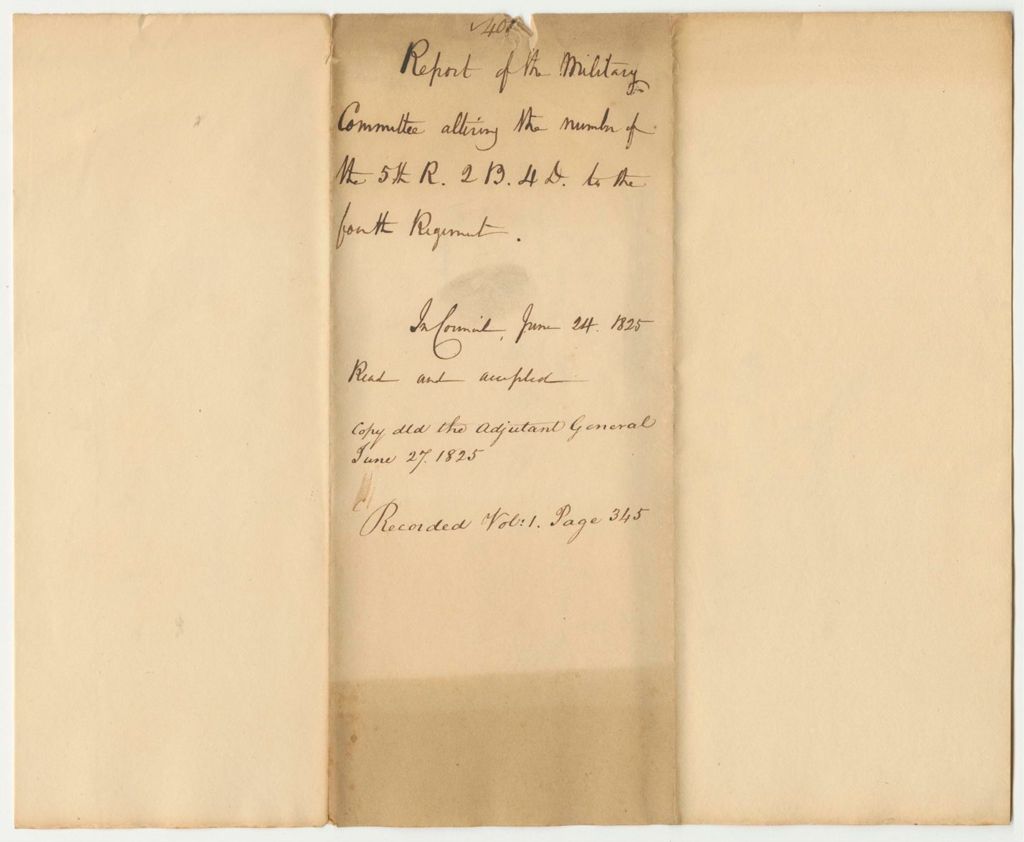 401
Report of the Military
Committee altering the number of
the 5th R. 2 B. 4 D. to the
fourth Regiment.
In Council, June 24. 1825
Read and accepted
Copy dld the Adjutant General
June 27. 1825
Recorded Vol: 1. Page 345